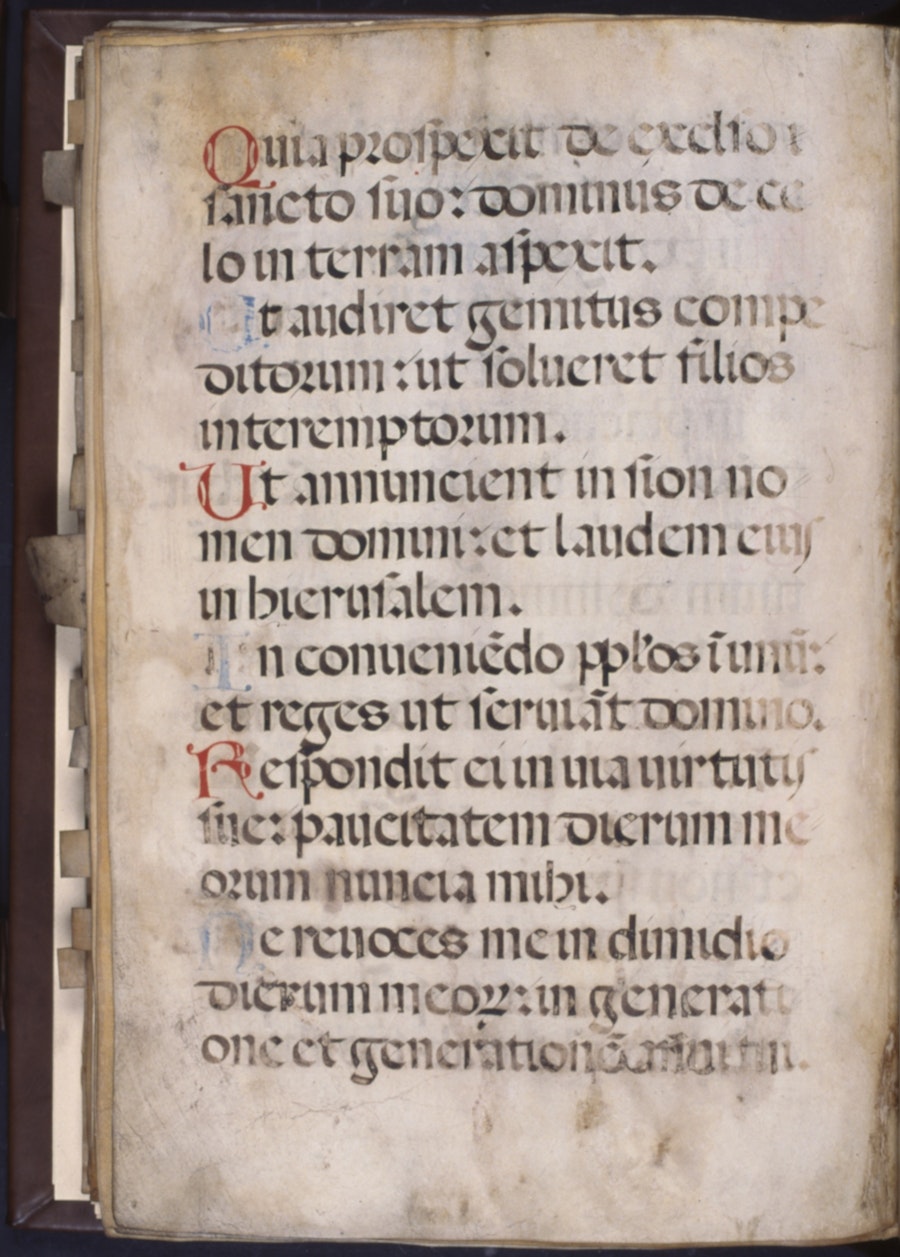 Quia prospexit de excelso
sancto suo: dominus de ce
lo in terram aspexit.
Ut audiret gemitus compe
ditorum: ut solueret filios
interemptorum.
Ut annuncient in sion no
men domini: et laudem eius
in hierusalem.
In conueniẽdo pplõs ĩ unũ:
et reges ut seruiãt domino.
Respondit ei in uia uirtutis
sue: paucitatem dierum me
orum nuncia mihi.
Ne reuoces me in dimidio
dierum meoꝝ: in generati
one et generationẽ anni tui.